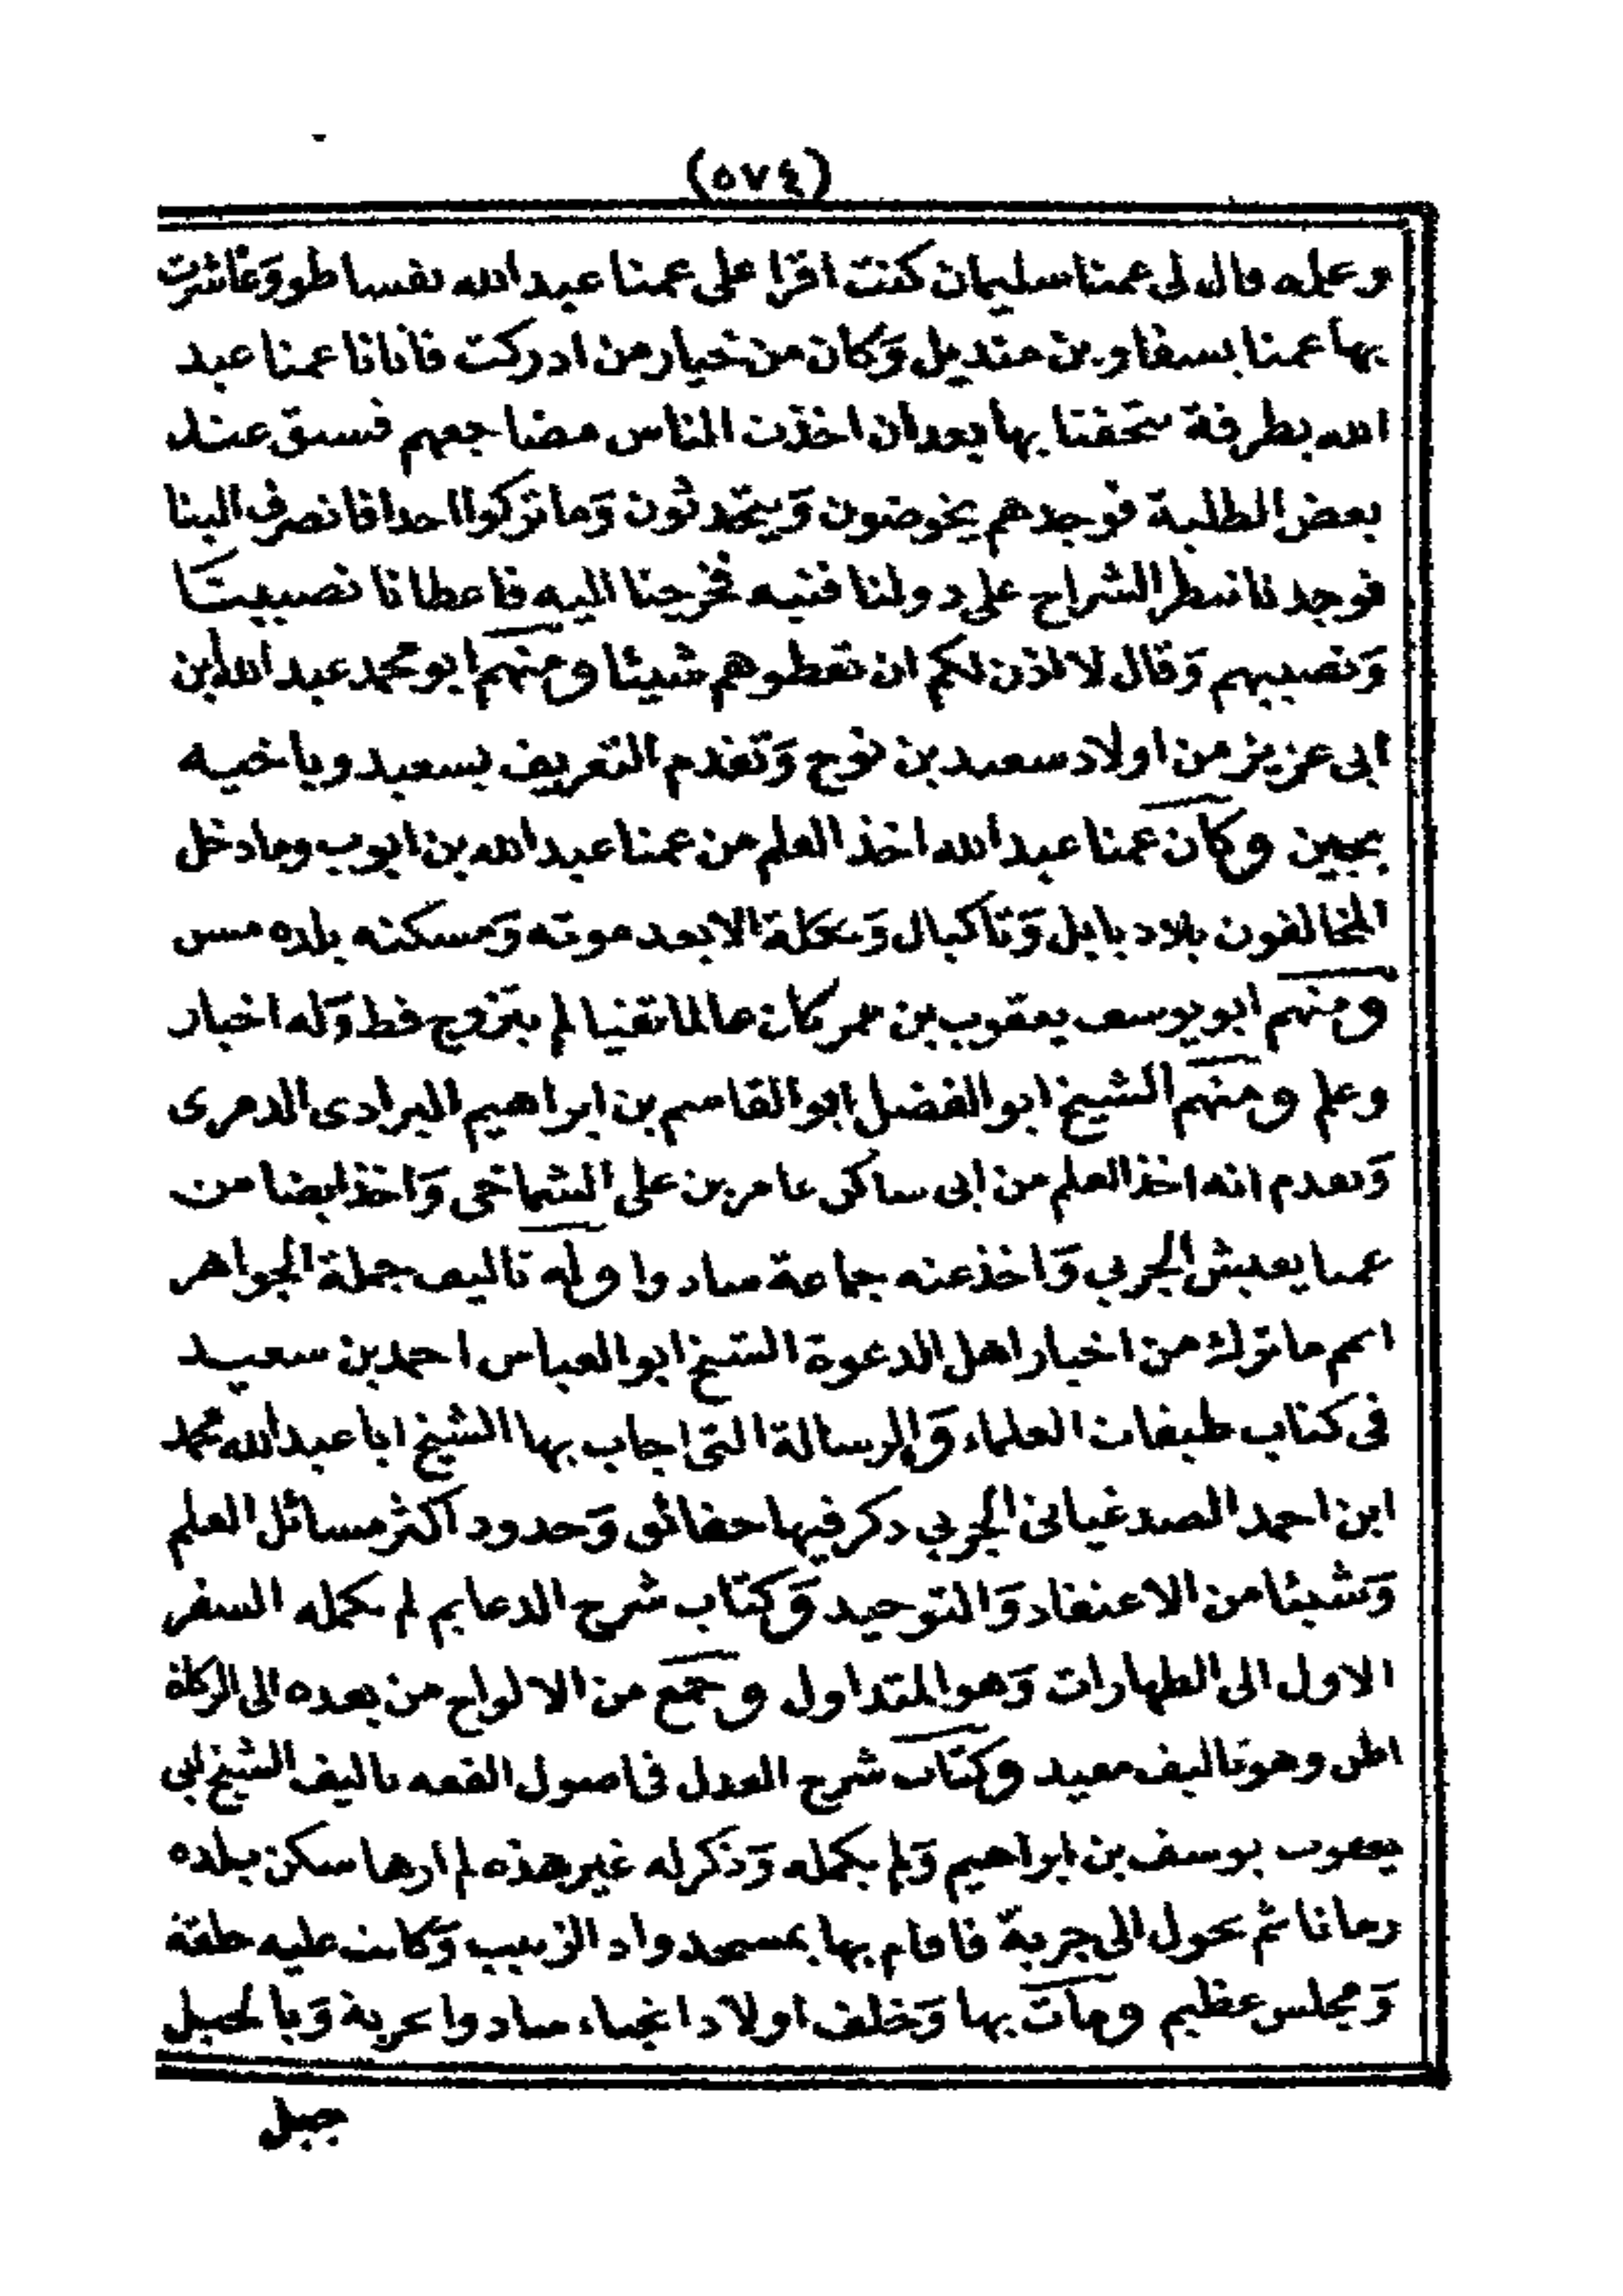 (٥٧٤)
وعمله قال لى عمنا سليمان كنت اقرا على عمنا عبد الله نفساطو وعاشرت
بها عمنا يسفاو بن منديل وَكان من خيار من ادركت فاتانا عمنا عبد
الله بطرفة تتحفنا بها بعد ان اخذت الناس مضاجعهم فسبق عند
بعض الطلبة فوجدهم يخوضون وَيتحدثون وَما تركوا احدا فانصرف الينا
فوجدنا نسطر الشراح على دولنا فنبه فخرجنا اليه فاعطانا نصيبنا
وَنصيبهم وَقال لا اذن لكم ان تعطوهم شيئا ومنهم ابو محمد عبد الله بن
ابى عزيز من اولاد سعيد بن نوح وَتقدم التعريف بسعيد وباخيه
يحيى وكان عمنا عبد الله اخذ العلم من عمنا عبد الله بن ايوب وما دخل
المخالفون بلاد بابل وَتاكبال وَ الا بعد موته وَمسكنه بلده مسن
ومنهم ابو يوسف يعقوب بن عمر كان عالما تقيا لم يتزوج قط وَله اخبار
وعلم ومنهم الشيخ ابو الفضل ابو القاسم بن ابراهيم البرادى الدمرى
وَتقدم انه اخذ العلم من ابى ساكن عامر بن على الشماخى وَاخذ ايضا من
عمنا يعيش الجربي وَاخذ عنه جماعة سادوا وله تاليف جملة الجواهر
اسم ما ترك من اخبار اهل الدعوة الشيخ ابو العباس احمد بن سعيد
فى كتاب طبقات العلماء وَالرسالة التى اجاب بها الشيخ ابا عبد الله محمد
ابن احمد الصدغيانى الجربي ذكر فيها حقائق وَحدود اكثر مسائل العلم
وَشيئا من الاعتقاد وَالتوحيد وَكتاب شرح الدعايم لم يكمله السفر
الاول الى الطهارات وَهو المتداول وجمع من الالواح من بعده الى الزكاة
اظن وهو تاليف مفيد وكتاب شرح العدل فى اصول الفقه تاليف الشيخ ابى
يعقوب يوسف بن ابراهيم وَلم يكمله وَذكر له غير هذه لم ارها سكن بلده
زمانا ثم تحول الى جربة فاقام بها بمسجد واد الزبيب وَكانت عليه حلقة
وَمجلس عظيم ومات بها وَخلف اولادا نجباء سادوا بجربة وَبالجبل
جبل